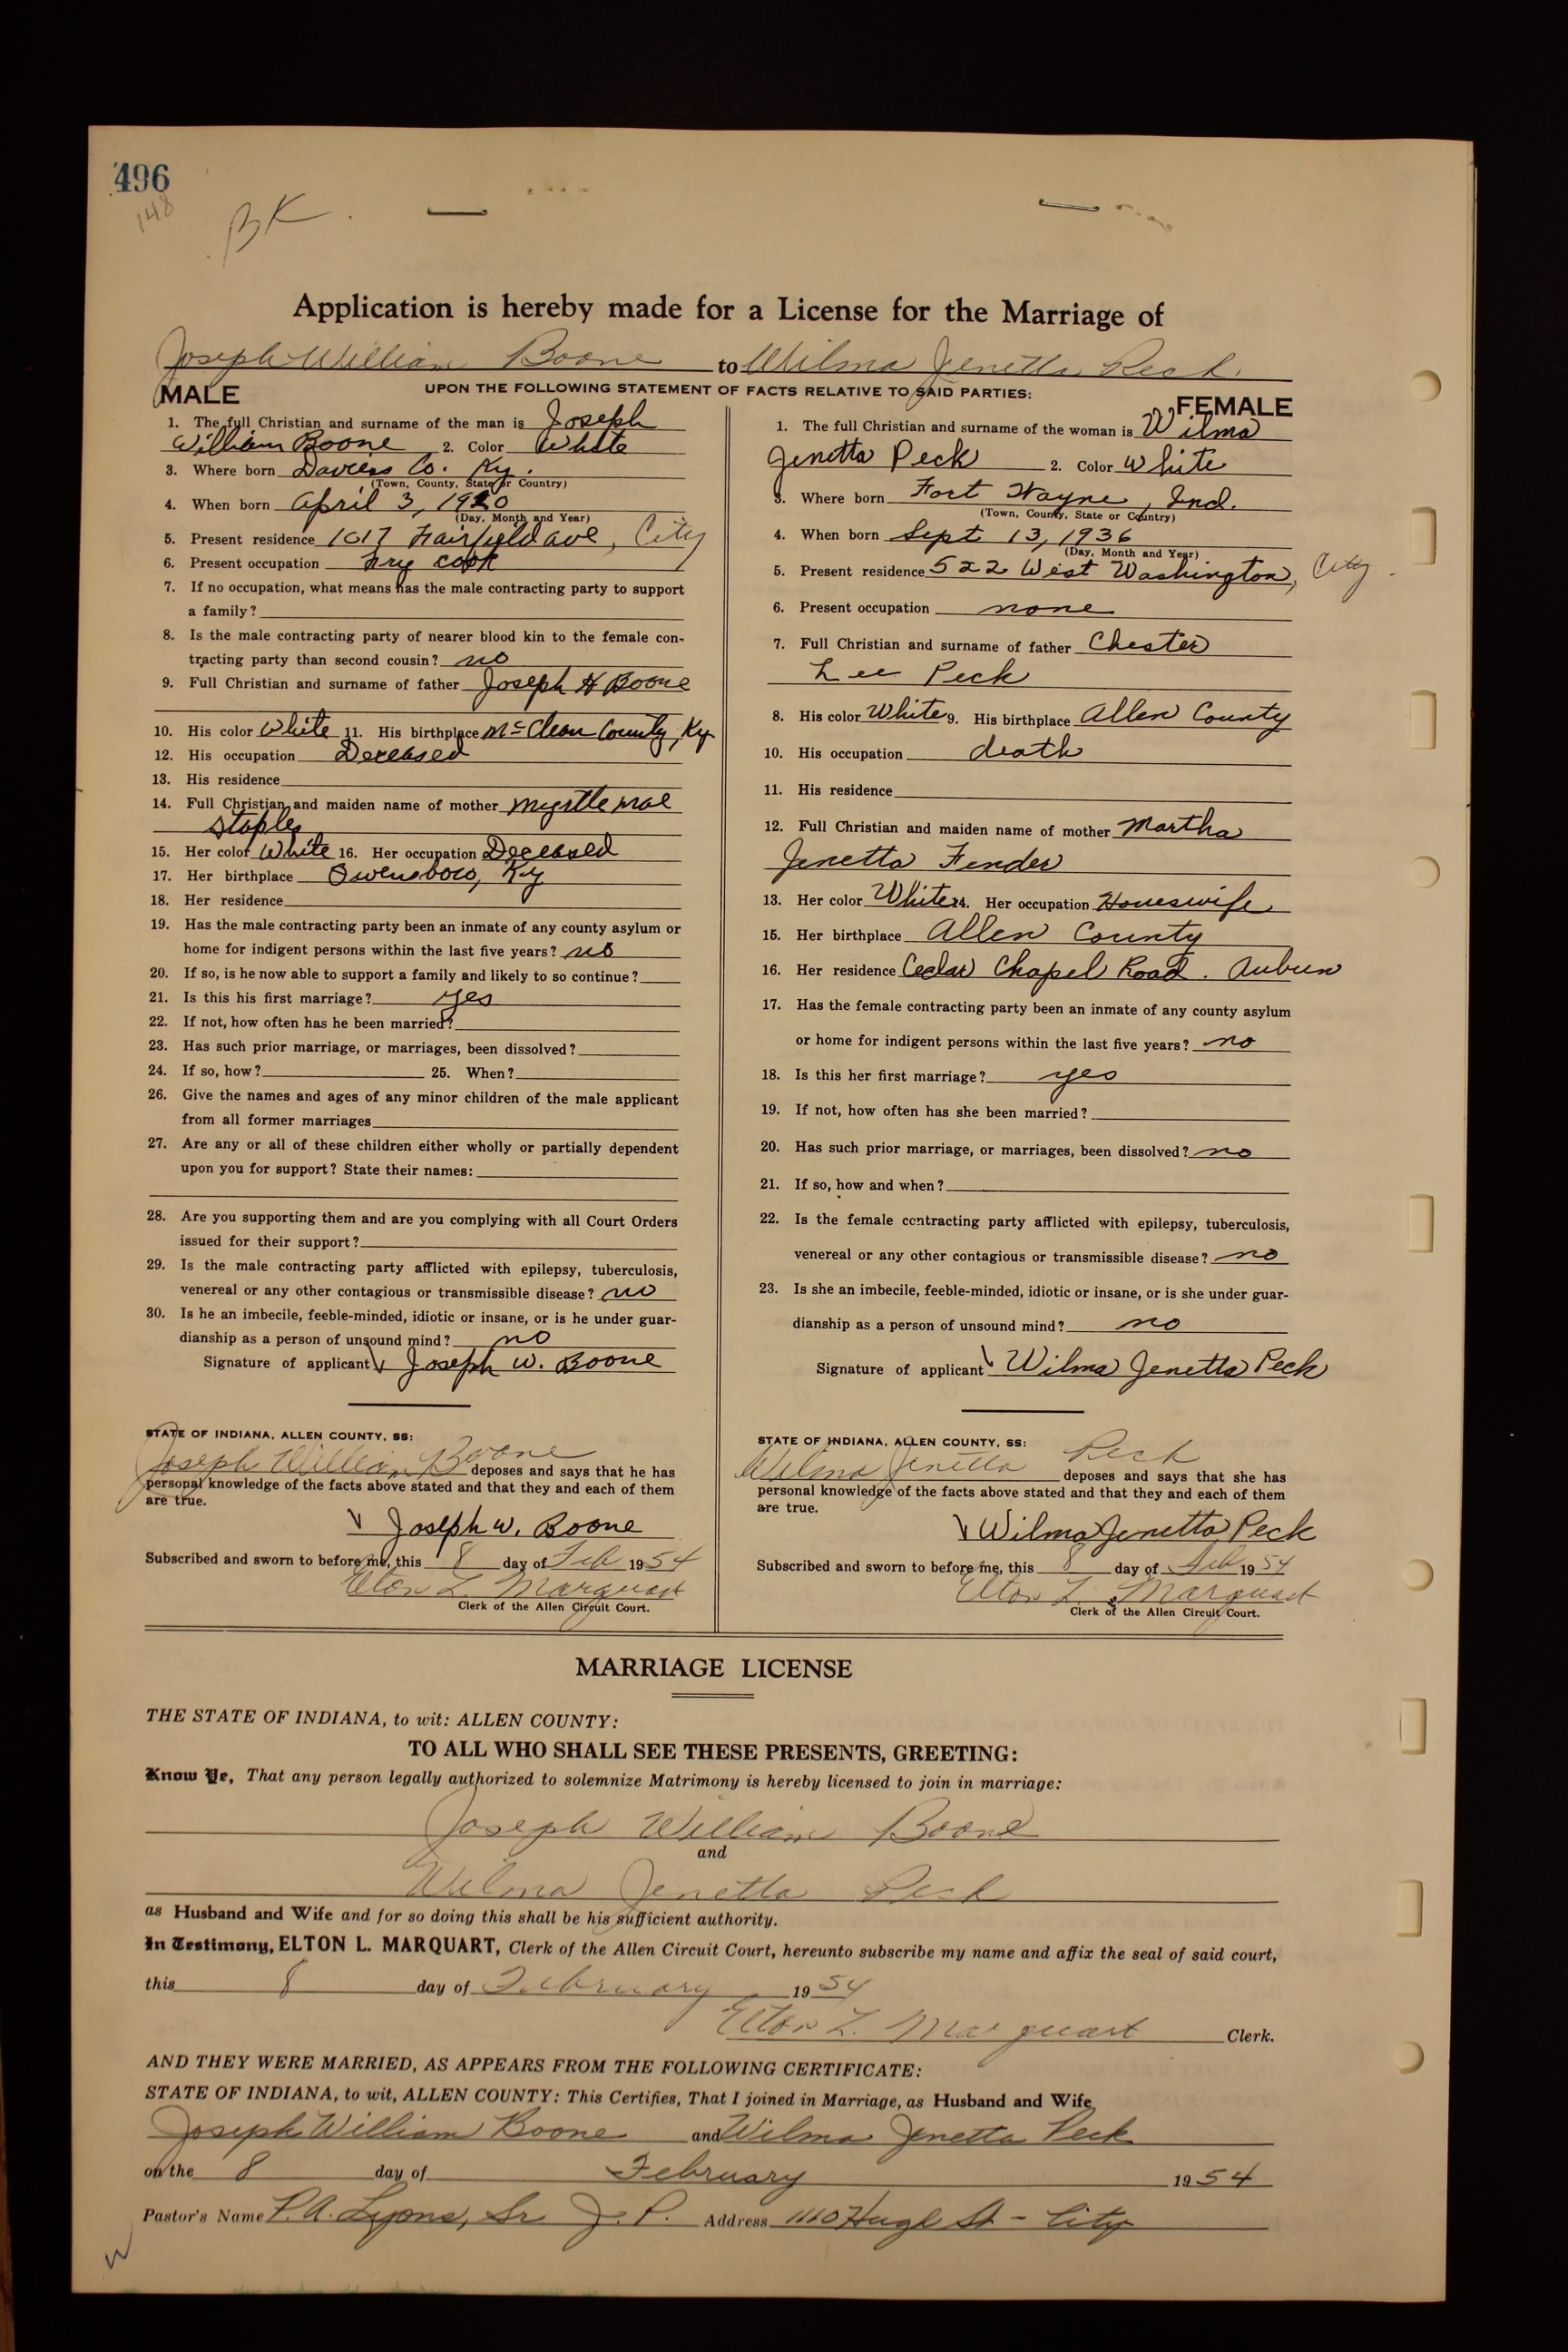 496
148
BK.
Application is hereby made for a License for the Marriage of
Joseph William Boone to Wilma Jenetta Peck
MALE UPON THE FOLLOWING STATEMENT OF FACTS RELATIVE TO SAID PARTIES: FEMALE
1. The full Christian and surname of the man is Joseph
William Boone 2. Color White
3. Where born Daviess Co. Ky.
(Town, County, State or Country)
4. When born April 3, 1920
(Day, Month and Year)
5. Present residence 1017 Fairfield ave, City
6. Present occupation Fry cook
7. If no occupation, what means has the male contracting party to support
a family?
8. Is the male contracting party of nearer blood kin to the female con-
tracting party than second cousin? no
9. Full Christian and surname of father Joseph H Boone
10. His color White 11. His birthplace McClean County, Ky
12. His occupation Deceased
13. His residence
14. Full Christian and maiden name of mother Myrtle Mae
Staples
15. Her color White 16. Her occupation Deceased
17. Her birthplace Owensboro, Ky
18. Her residence
19. Has the male contracting party been an inmate of any county asylum or
home for indigent persons within the last five years? no
20. If so, is he now able to support a family and likely to so continue?
21. Is this his first marriage? yes
22. If not, how often has he been married?
23. Has such prior marriage, or marriages, been dissolved?
24. If so, how? 25. When?
26. Give the names and ages of any minor children of the male applicant
from all former marriages
27. Are any or all of these children either wholly or partially dependent
upon you for support? State their names:
28. Are you supporting them and are you complying with all Court Orders
issued for their support?
29. Is the male contracting party afflicted with epilepsy, tuberculosis,
venereal or any other contagious or transmissible disease? no
30. Is he an imbecile, feeble-minded, idiotic or insane, or is he under guar-
dianship as a person of unsound mind? no
Signature of applicant Joseph W. Boone
STATE OF INDIANA, ALLEN COUNTY, SS:
Joseph William Boone deposes and says that he has
personal knowledge of the facts above stated and that they and each of them
are true.
Joseph W. Boone
Subscribed and sworn to before me, this 8 day of Feb 1954
Elton L. Marquart
Clerk of the Allen Circuit Court.
1. The full Christian and surname of the woman is Wilma
Jenetta Peck 2. Color White
3. Where born Fort Wayne, Ind.
(Town, County, State or Country)
4. When born Sept 13, 1936
(Day, Month and Year)
5. Present residence 522 West Washington, City
6. Present occupation none
7. Full Christian and surname of father Chester
Lee Peck
8. His color White 9. His birthplace Allen County
10. His occupation death
11. His residence
12. Full Christian and maiden name of mother Martha
Jenetta Fender
13. Her color White 14. Her occupation Houeswife
15. Her birthplace Allen County
16. Her residence Cedar Chapel Road. Auburn
17. Has the female contracting party been an inmate of any county asylum
or home for indigent persons within the last five years? no
18. Is this her first marriage? yes
19. If not, how often has she been married?
20. Has such prior marriage, or marriages, been dissolved? no
21. If so, how and when?
22. Is the female contracting party afflicted with epilepsy, tuberculosis,
venereal or any other contagious or transmissible disease? no
23. Is she an imbecile, feeble-minded, idiotic or insane, or is she under guar-
dianship as a person of unsound mind? no
Signature of applicant Wilma Jenetta Peck
STATE OF INDIANA, ALLEN COUNTY, SS:
Wilma Jenetta Peck deposes and says that she has
personal knowledge of the facts above stated and that they and each of them
are true.
Wilma Jenetta Peck
Subscribed and sworn to before me, this 8 day of Feb 1954
Elton L. Marquart
Clerk of the Allen Circuit Court.
MARRIAGE LICENSE
THE STATE OF INDIANA, to wit: ALLEN COUNTY:
TO ALL WHO SHALL SEE THESE PRESENTS, GREETING:
Know Ye, That any person legally authorized to solemnize Matrimony is hereby licensed to join in marriage:
Joseph William Boone
and
Wilma Jenetta Peck
as Husband and Wife and for so doing this shall be his sufficient authority.
In Testimony, ELTON L. MARQUART, Clerk of the Allen Circuit Court, hereunto subscribe my name and affix the seal of said court,
this 8 day of February 1954
Elton L. Marquart Clerk.
AND THEY WERE MARRIED, AS APPEARS FROM THE FOLLOWING CERTIFICATE:
STATE OF INDIANA, to wit, ALLEN COUNTY: This Certifies, That I joined in Marriage, as Husband and Wife
Joseph William Boone and Wilma Jenetta Peck
on the 8 day of February 1954
Pastor's Name P.A. Lyons, Sr J.P. Address 1110 Hugh St - City